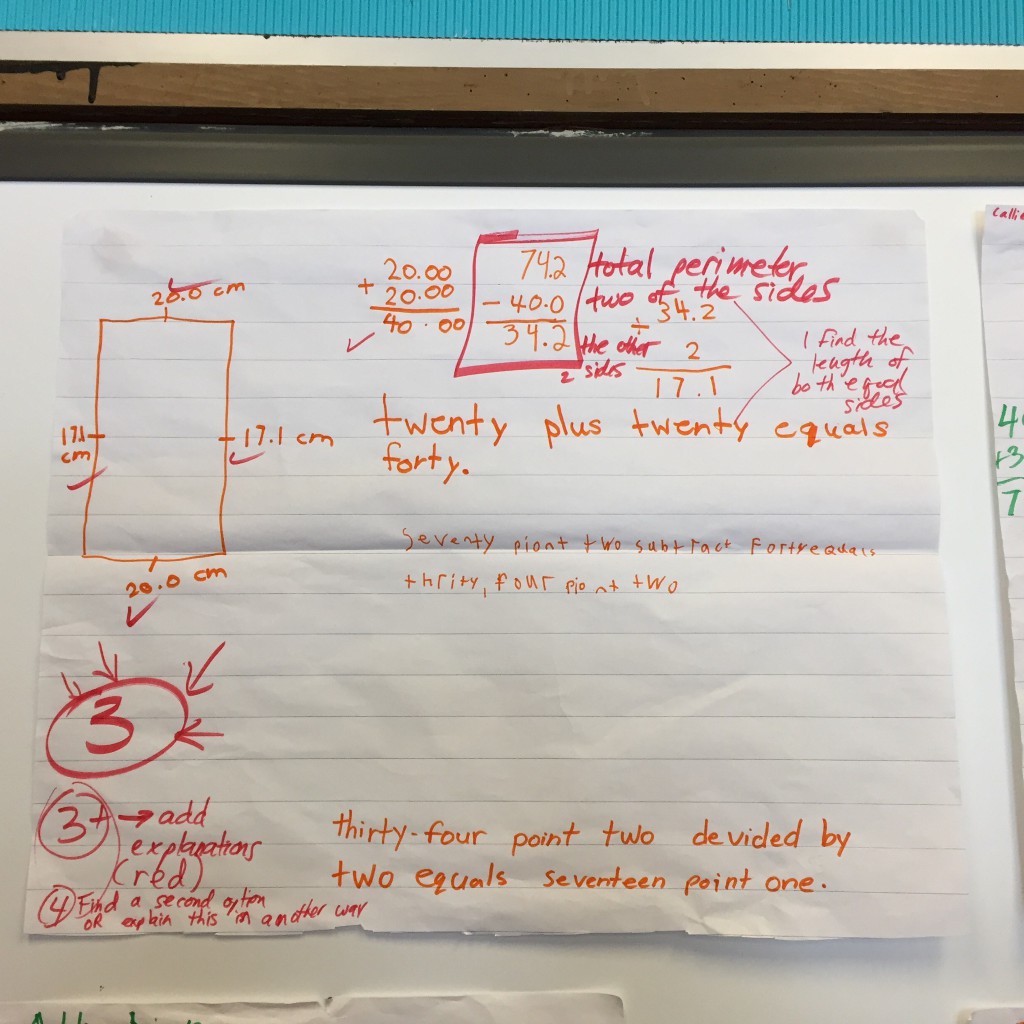 Callie
20.0 cm
17.1
cm
17.1 cm
20.0 cm
20.00
+ 20.00
40.00
74.2
- 40.0
34.2
total perimeter
two of the sides
the other
2 sides
÷ 34.2
2
17.1
I find the
length of
both equal
sides
twenty plus twenty equals
forty.
Seventy piont two subtract Fortyequals
thrity, four piont two
3
3+ → add
explanations
(red)
4 Find a second option
OR explain this in another way
thirty-four point two devided by
two equals seventeen point one.
4
+3
7